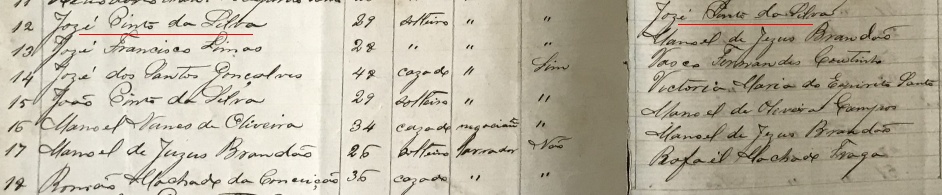 12 Jozé Pinto da Silva 29 solteiro " "
13 Jozé Francisco Limas 28 " " "
14 Jozé dos Santos Gonçalves 42 cazado " Sim
15 João Pinto da Silva 29 solteiro " "
16 Manoel Nunes de Oliveira 34 cazado negociante "
17 Manoel de Jezus Brandão 26 solteiro lavrador Não
18 Romão Machado da Conceição 36 cazado " "
Jozé Pinto da Silva
Manoel de Jezus Brandão
Vasco Fernandes Coutinho
Victoria Maria do Espirito Santo
Manoel de Oliveira Campos
Manoel de Jezus Brandão
Rafael Machado Fraga